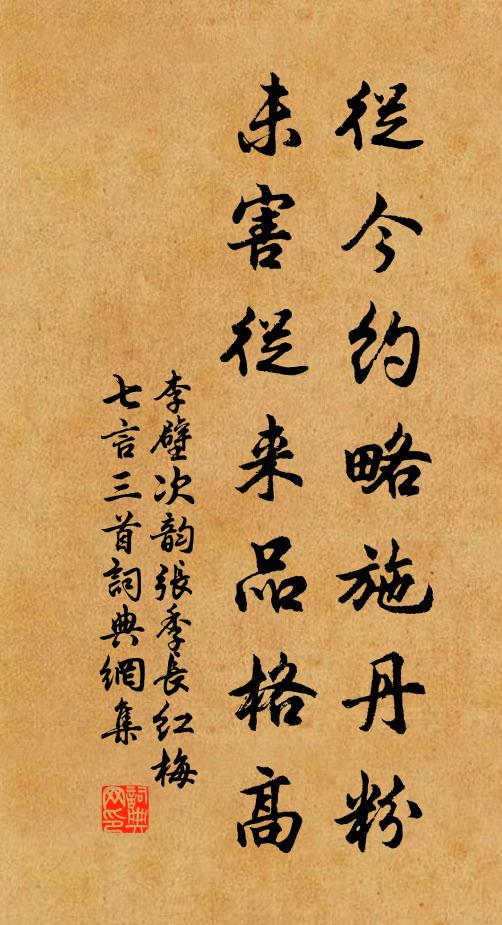 從今約略施丹粉
未害從来品格高
李壁次韵張季長红梅
七言三首詞典網集
詞典網印